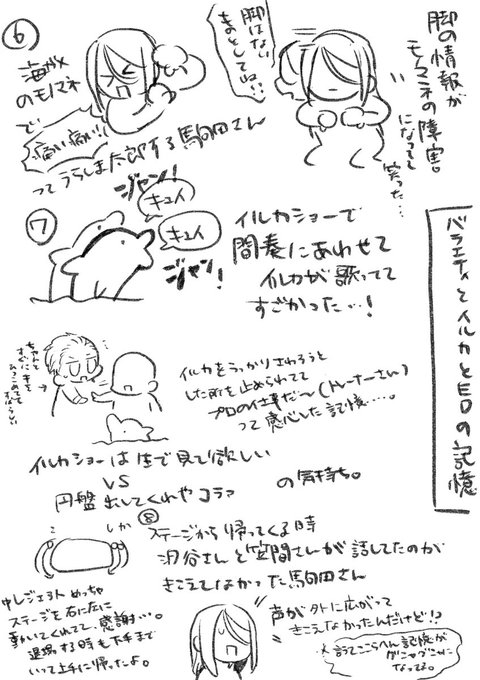 バラエティとイルカとEDの記憶
脚の情報が
モノマネの障害
になってて
笑った…
脚はない
ものとしてね!!
⑥
海ガメ
のモノマネ
で
痛い痛い!!
ってうらしま太郎する駒田さん
⑦
ジャン!
キュイ
キュイ
ジャン!
イルカショーで
間奏にあわせて
イルカが歌ってて
すごかった…!
イルカをうっかりさわろうと
した所を止められてて
プロの仕事だ〜(トレーナーさん)
って感心した記憶…。
イルカショーは生で見て欲しい
VS
円盤出してくれやコラァ
の気持ち。
⑧
ステージから帰ってくる時
汐谷さんと笠間さんが話してたのが
きこえてなかった駒田さん
しか
中しジェネト めっちゃ
ステージを右に左に
動いてくれてて、感謝…。
退場する時も下手まで
いって上手に帰ったよ。
声が外に広がって
きこえなかったんだけど!?
※言うてここらへん記憶が
グニャグニャに
なってる。